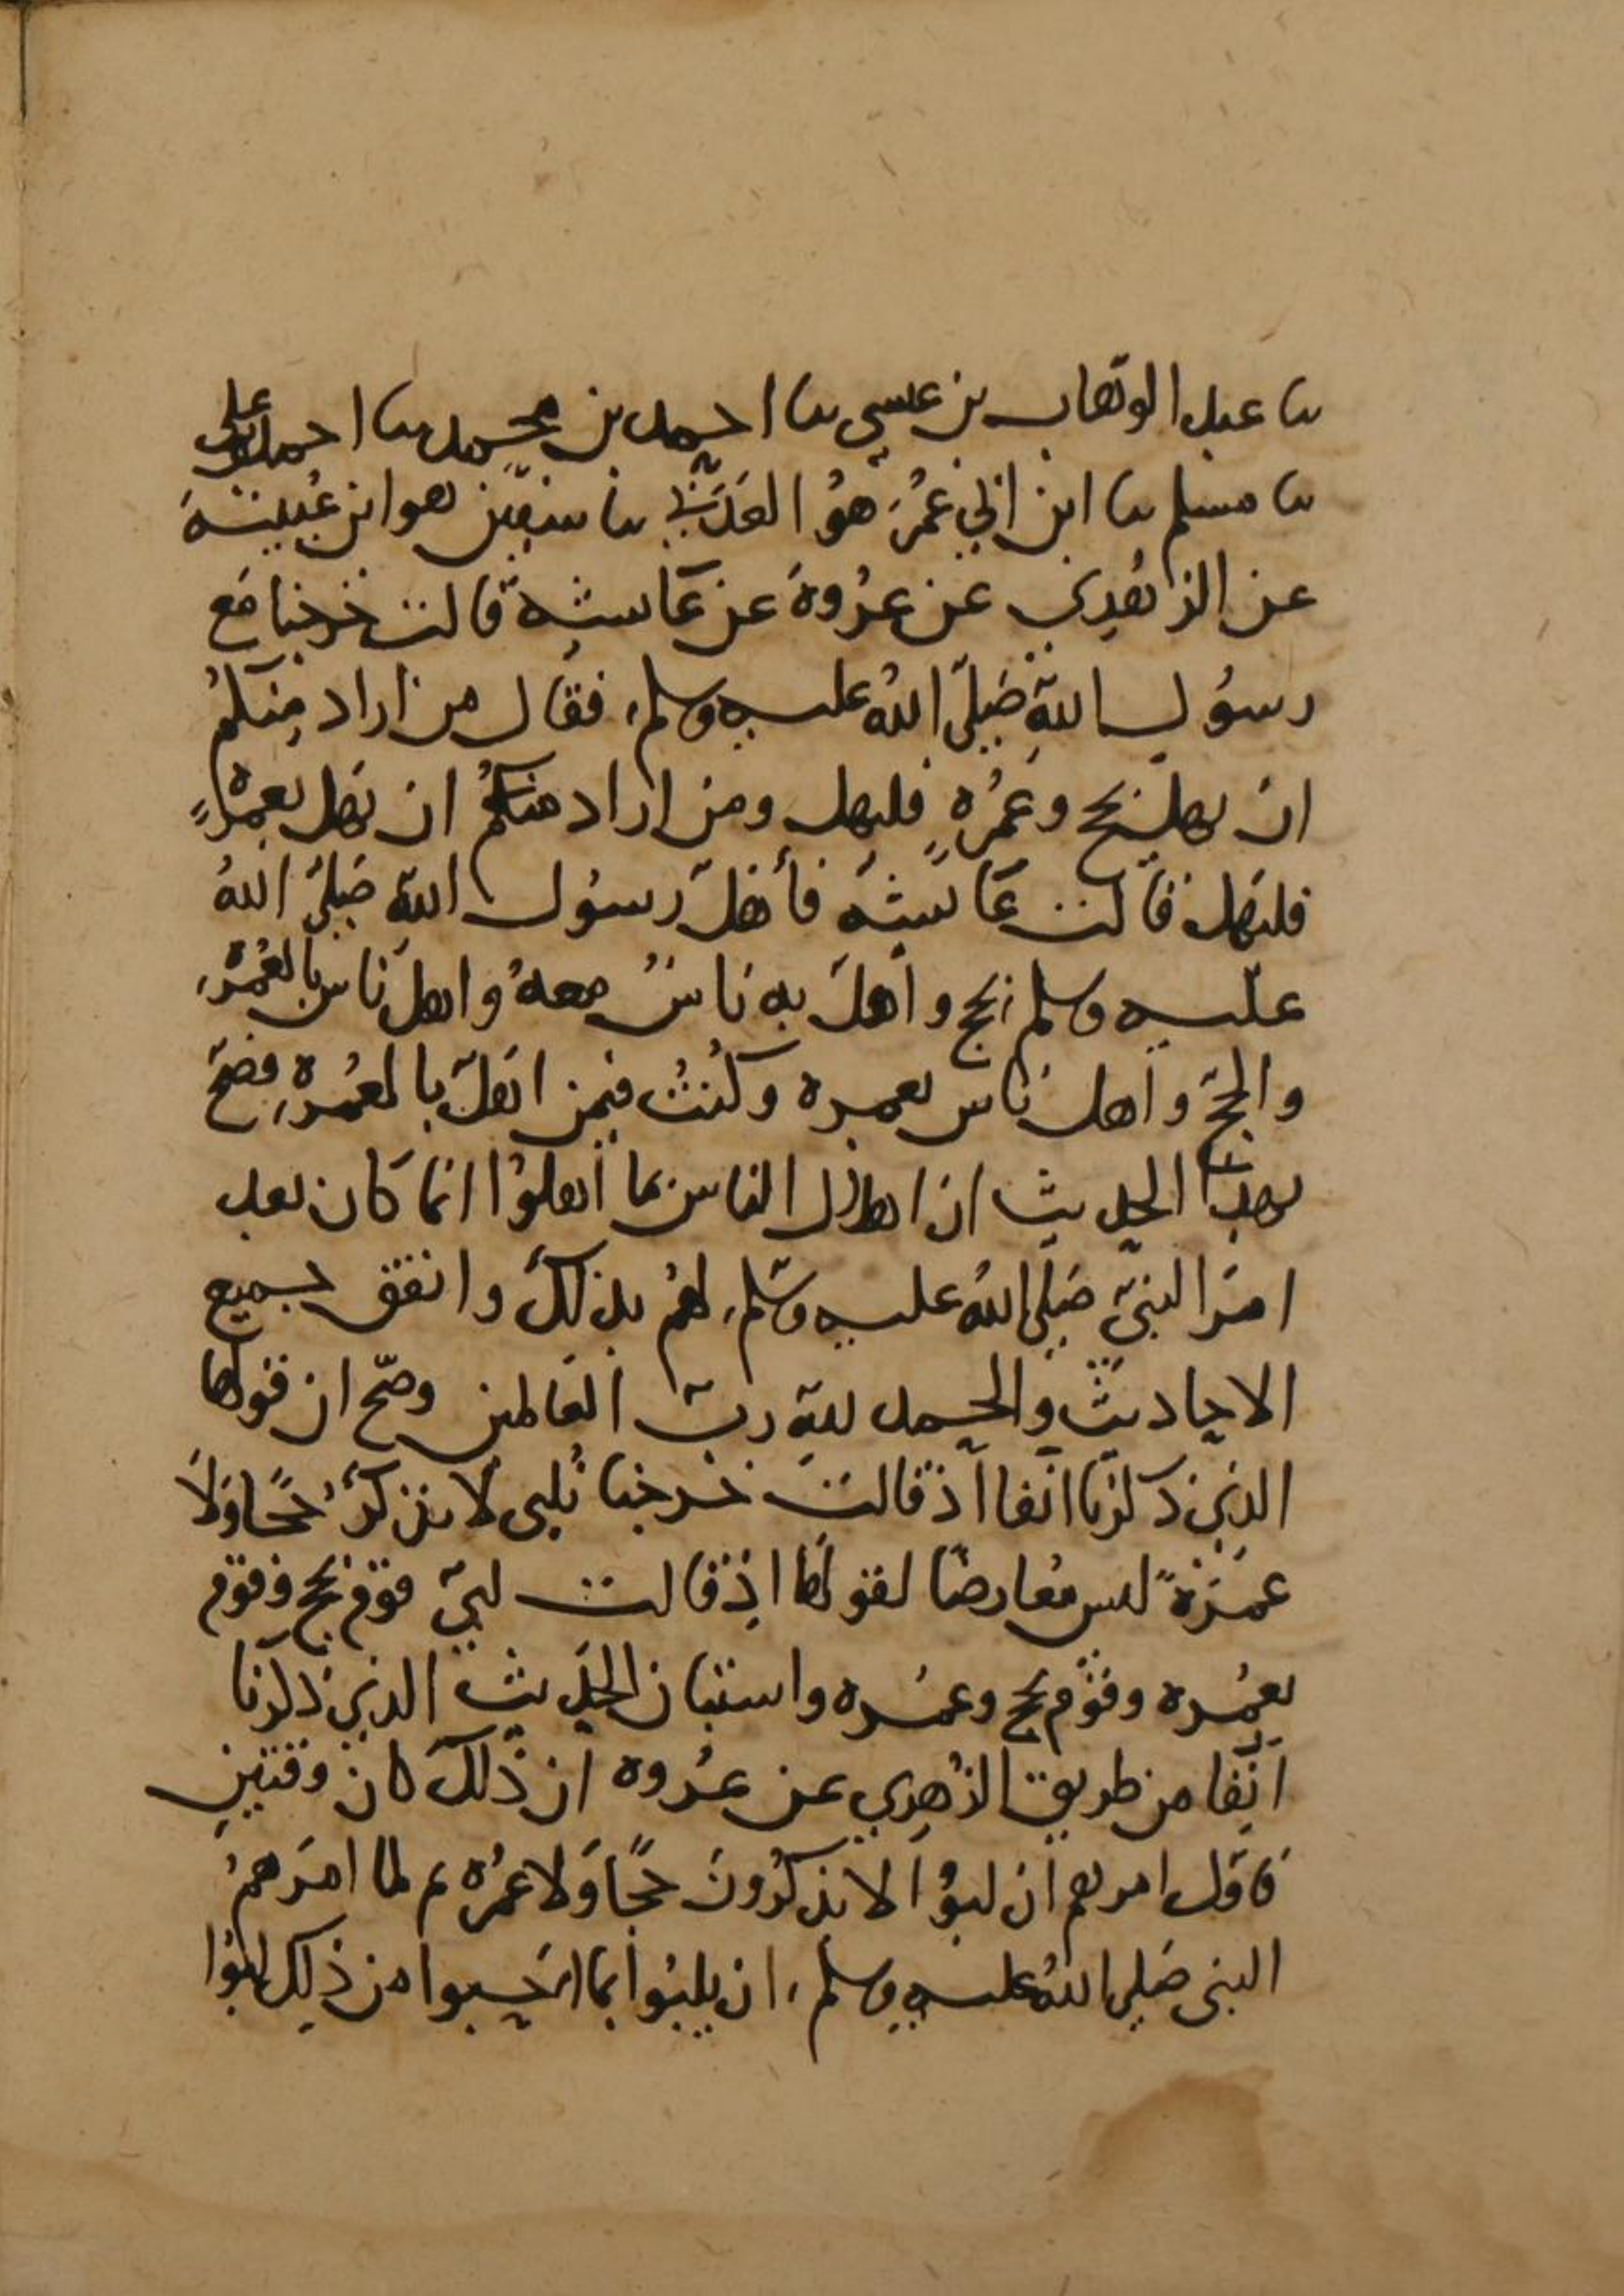 ثنا عبد الوهاب بن عيسى ثنا احمد بن محمد ثنا احمد بن علي
ثنا مسلم ثنا ابن ابي عمر هو العدني ثنا سفين هو ابن عيينة
عن الزهري عن عروة عن عائشة قالت خرجنا مع
رسول الله صلى الله عليه وسلم فقال من اراد منكم
ان يهل بحج وعمرة فليهل ومن اراد منكم ان يهل بعمرة
فليهل قالت عائشة فأهل رسول الله صلى الله
عليه وسلم بحج وأهل به ناس معه واهل ناس بالعمرة
والحج وأهل ناس بعمرة وكنت فيمن اهل بالعمرة فصح
بهذا الحديث ان اهلال الناس بما أهلوا انما كان بعد
امر النبي صلى الله عليه وسلم لهم بذلك واتفق جميع
الاحاديث والحمد لله رب العالمين وصح ان قولها
الذي ذكرنا انفا اذ قالت خرجنا نلبي لا نذكر حجا ولا
عمرة ليس معارضا لقولها اذ قالت لبى قوم بحج وقوم
بعمرة وقوم بحج وعمرة واستبان الحديث الذي ذكرنا
آنفا من طريق الزهري عن عروة ان ذلك كان وقتين
فاول امرهم ان لبوا لا يذكرون حجا ولا عمرة ثم لما امرهم
النبي صلى الله عليه وسلم ان يلبوا بما احبوا من ذلك لبوا